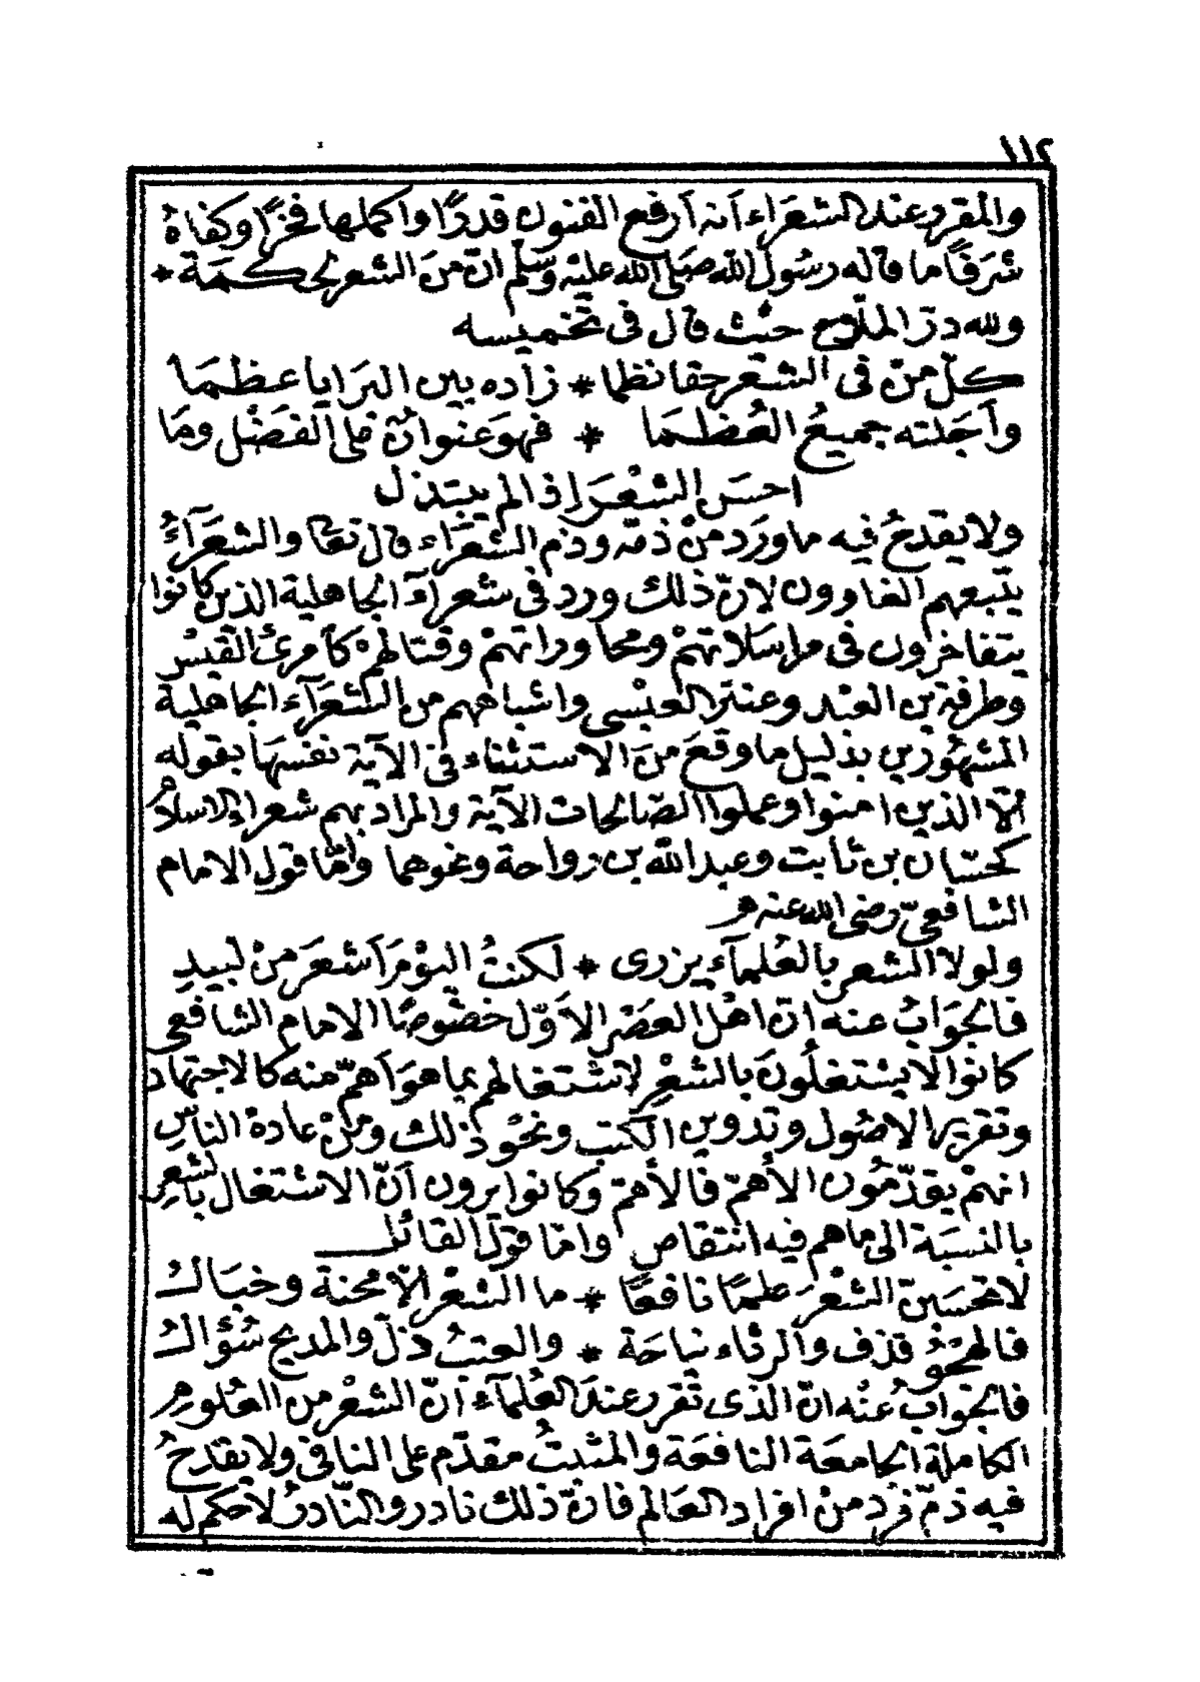 ١١٢
والمقرر عند الشعَراء أنه أرفع الفنون قدرًا واكملها فخرًا وكفاهُ
شرَفاً ما قاله رسُول الله صَلى الله عليْه وسلم انّ منَ الشعر لحكمَة *
ولله درّ الملّوح حيْث قال فى تخميسه
كلّ منْ فى الشعْر حقا نظما * زاده بين البرَايا عظمَا
وأجَلته جميعُ العُظمَا * فهوَ عنوانٌ على الفضْل ومَا
احسَن الشعْرَ اذا لم يبتذل
ولا يقدحُ فيه ما ورَد منْ ذمّه وذم الشعَّراء قال تعا والشعَرآءُ
يتّبعهم الغاوون لانّ ذلك ورد فى شعرآء الجاهلية الذين كانوا
يتفاخرون فى مراسَلاتهمْ ومحاوراتهمْ وقتالهمْ كأمرئ القيْس
وطرفة بن العبْد وعنتر العبْسى واشباههم من الشعَرآء الجاهلية
المشهُورين بدليل ما وقعَ منَ الاستثناء فى الآية نفسهَا بقوله
الّا الذين امنوا وعملوا الصّالحات الآية والمراد بهم شعراء الاسلام
كحسّان بن ثابت وعبد الله بن رواحة ونحوهما وأمّا قول الامام
الشافعىّ رضى الله عنه
ولولا الشعر بالعُلمآء يزرى * لكنتُ اليوْمَ أشعرَ منْ لبيدِ
فالجوَابُ عنه انّ اهْل العصْر الأوّل خصُوصًا الامام الشافعى
كانوا لا يشتغلُونَ بالشعْرِ لاشتغالهم بما هوَ أهمّ منه كالاجتهاد
وتقرير الاصُول وتدوين الكتب ونحْو ذلك ومنْ عادة الناسِ
انهمْ يقدّمُون الأهمّ فالأهمّ وكانوا يرون أنّ الاشتغال بالشعر
بالنسبَة الى ما هم فيه انتقاص وامّا قوْل القائل
لا تحسَبنّ الشعْرَ علمًا نافعًا * ما الشعْر الّا محْنة وخبَالُ
فالهجْوُ قذف والرثاء نياحَة * والعتبُ ذلّ والمديح سُؤالُ
فالجوَابُ عنْه انّ الذى تقرر عندَ العُلمآء أنّ الشعْر من العُلوم
الكاملة الجامعَة النافعَة والمثبتُ مقدّم على النافى ولا يقدحُ
فيه ذمّ فرْد منْ افراد العَالم فانّ ذلك نادر والنّادرُ لا حكم له